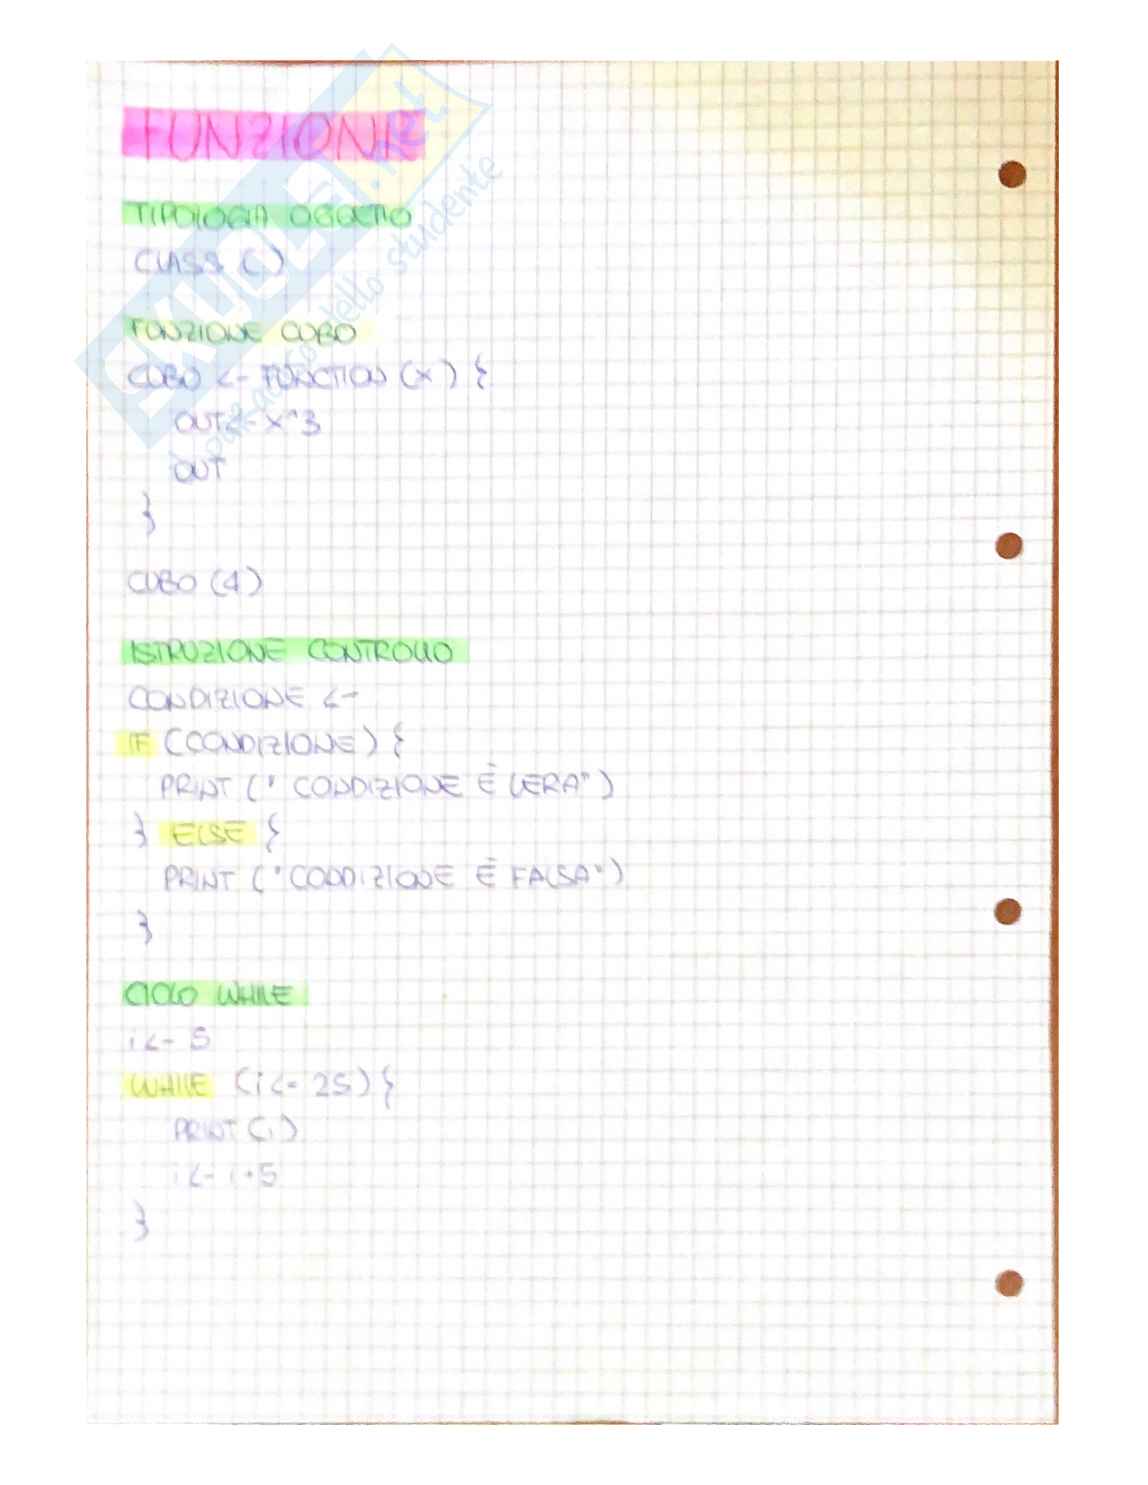 FUNZIONI
TIPOLOGIA OGGETTO
CLASS ( )
FUNZIONE CUBO
CUBO <- FUNCTION (X) {
OUT <- X^3
OUT
}
CUBO (4)
ISTRUZIONE CONTROLLO
CONDIZIONE <-
IF (CONDIZIONE) {
PRINT (" CONDIZIONE È VERA")
} ELSE {
PRINT ("CONDIZIONE È FALSA")
}
CICLO WHILE
i <- 5
WHILE (i <= 25) {
PRINT (i)
i <- i+5
}
SKUOLA.net
dello studente